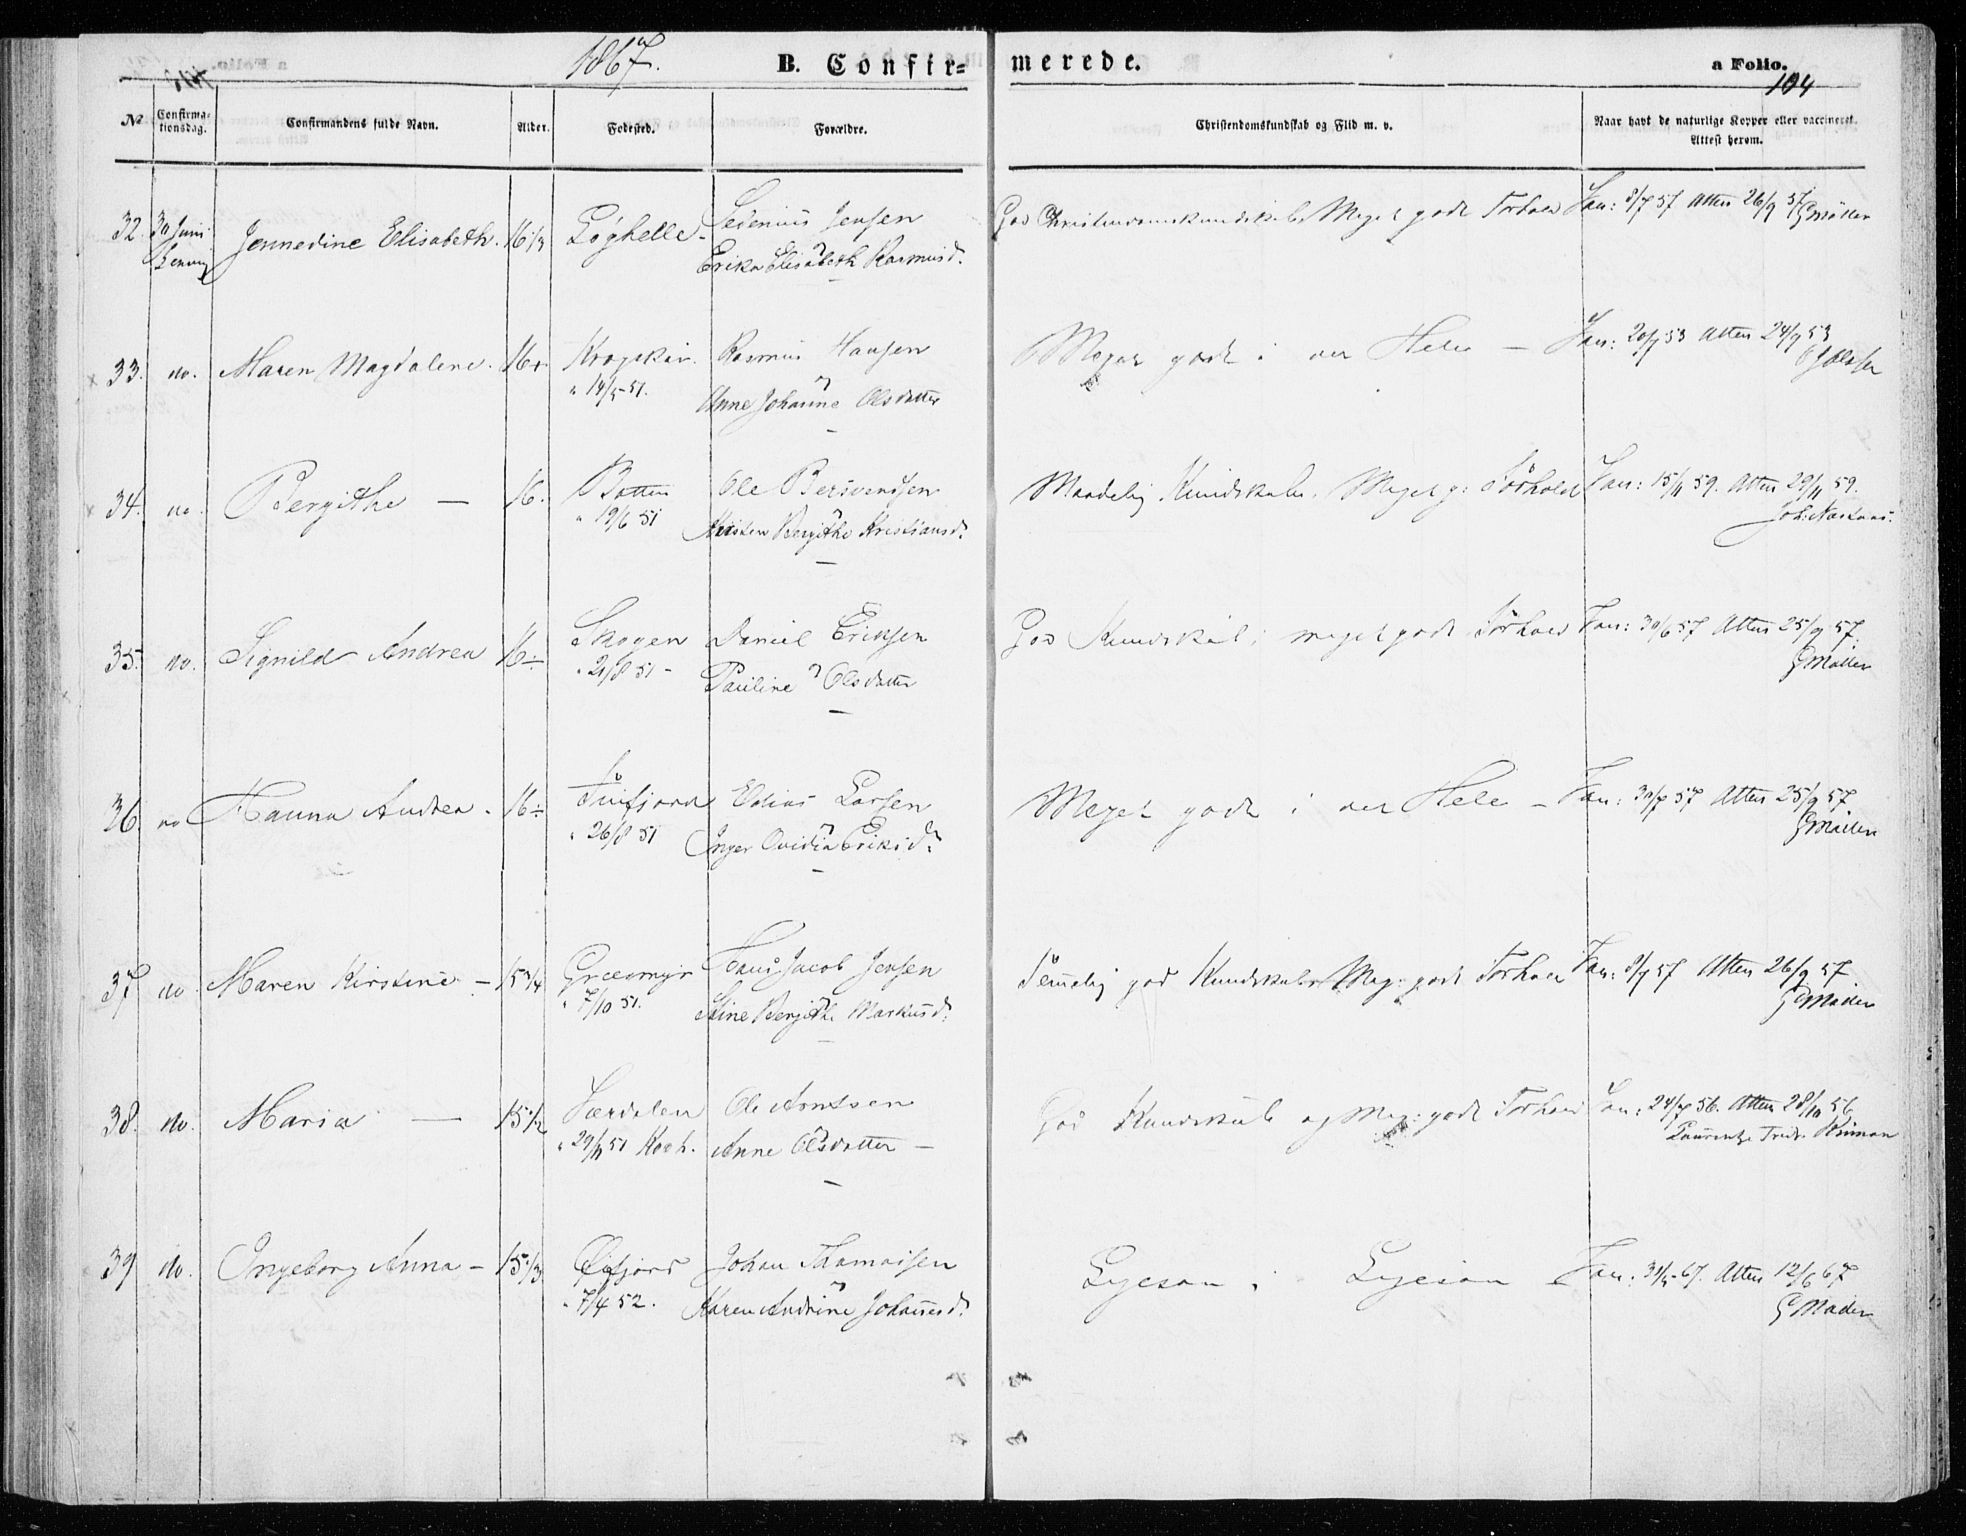 1867.
B. Confir= merede.
a Folio.
104
No Confirma-tionsdag. Confirmandens fulde Navn. Alder. Fødested. Forældre. Christendomskundskab og Flid m. v. Naar havt de naturlige Kopper eller vaccineret. Attest herom.
32. 30 Juni Jennedine Elisabeth. 16 1/3 Løghelle Sedenius Jensen God Christendomskundskab Meget godt Forhold Vac: 8/7 57 Attest 26/9 57
Erika Elisabeth Rasmusd. GMøller
33. do. Maren Magdalene. 16 Rasmus Hansen Meget godt i det Hele — Vac: 53 Attest 24/9 53
" 14/5 51. Anne Johanne Olsdatter
34. do. Bergithe — 16. Botten Ole Bersvendsen Maadelig Kundskab. Meget g: Forhold Vac: 15/11 59. Attest 29/11 59.
" 19/6 51 Kirsten Bergithe Kristiansd:
35. do. Signild Andrea 16 Skogen Daniel Eriksen God Kundskab; meget godt Forhold Vac: 30/6 57 Attest 25/9 57.
" 21/8 51 — Pauline Olsdatter GMøller
36. do Hanna Andrea. 16 Edias Larsen Meget godt i det Hele — Vac: 30/7 57 Attest 25/9 57.
" 26/8 51 Inger Ovidia Eriksd: GMøller
37 do Maren Kirstine — 15 3/4 Græsmyr Hans Jacob Jensen Temelig god Kundskab Meg: godt Forhold Vac: 8/7 57 Attest 26/9 57
" 7/10 51. Stine Bergithe Markusd: GMøller
38. do. Maria — 15 1/2 Værdalen Ole Arntsen God Kundskab og Meg: godt Forhold Vac: 24/7 56. Attest 28/10 56.
" 29/11 51 Anne Olsdatter —
39 do. Ingeborg Anna — 15 1/3 Øxfjord Johan Thomassen
" 7/4 52. Karen Andrine Johansd: Vac: 31/5 67. Attest 12/6 67
GMøller